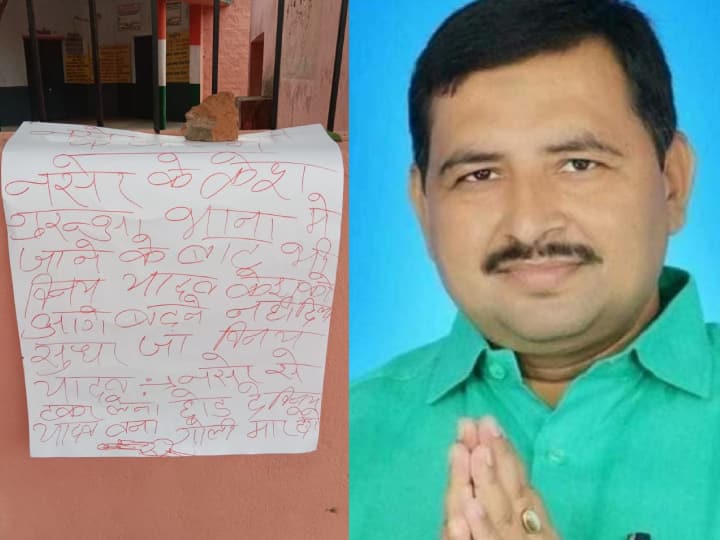 नसेर के केश
थाना मे
जाने के बाद भी
विनय यादव केश को
आगे बढने नही दिया
सुधर जा विनय
यादव नसेर से
टकर लेना छोड दे विनय
यादव वना गोली मार देगे